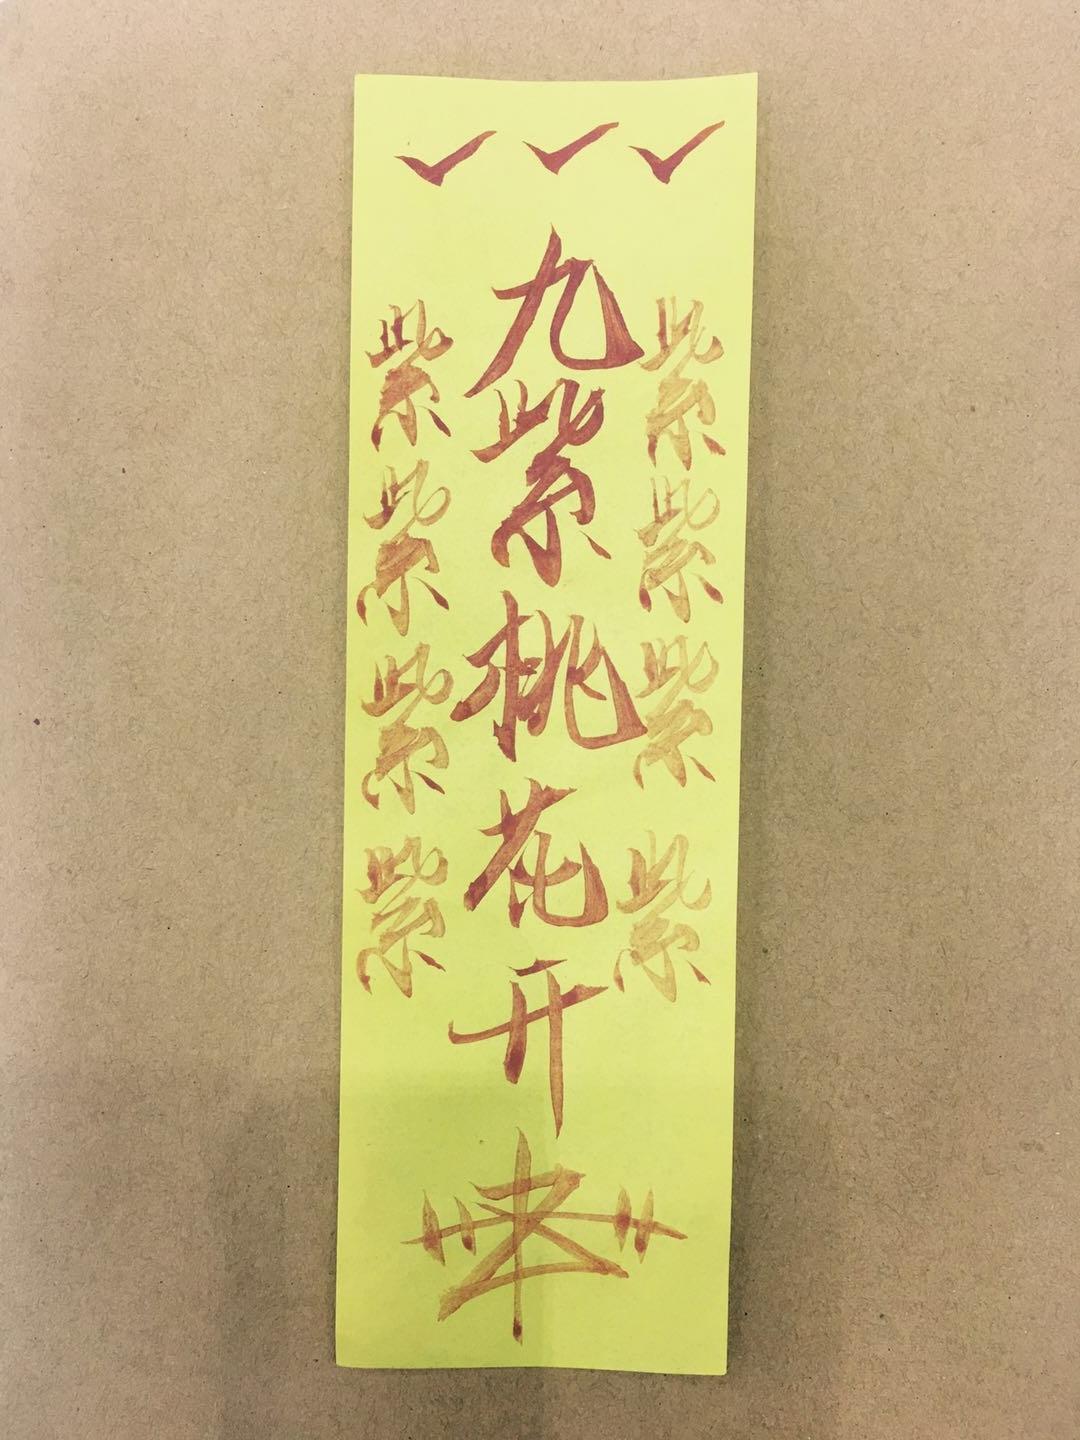 九紫桃花开
紫紫紫紫
紫紫紫紫